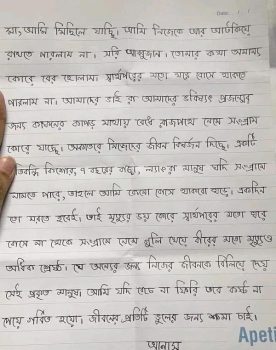 মা, আমি মিছিলে যাচ্ছি। আমি নিজেকে আর আটকিয়ে
রাখতে পারলাম না। সরি আব্বুজান। তোমার কথা অমান্য
কোরে বের হোলাম। স্বার্থপরের মতো ঘরে বোসে থাকতে
পারলাম না। আমাদের ভাই রা আমাদের ভবিষ্যৎ প্রজন্মের
জন্য কাফনের কাপড় মাথায় বেধে রাজপথে নেমে সংগ্রাম
কোরে যাচ্ছে। অকাতরে নিজেদের জীবন বিসর্জন দিচ্ছে। একটি
প্রতিবন্ধি কিশোর, ৭ বছরের বাচ্চা, ল্যাংড়া মানুষ যদি সংগ্রামে
নামতে পারে, তাহলে আমি কেনো বোসে থাকবো ঘরে। একদিন
তো মরতে হবেই। তাই মৃত্যুর ভয় কোরে স্বার্থপরের মতো ঘরে
বোসে না থেকে সংগ্রামে নেমে গুলি খেয়ে বীরের মতো মৃত্যুও
অধিক শ্রেষ্ঠ। যে অন্যের জন্য নিজের জীবনকে বিলিয়ে দেয়
সেই প্রকৃত মানুষ। আমি যদি বেচে না ফিরি তবে কষ্ট না
পেয়ে গর্বিত হয়ো। জীবনের প্রতিটি ভুলের জন্য ক্ষমা চাই।
আনাস
Apeti